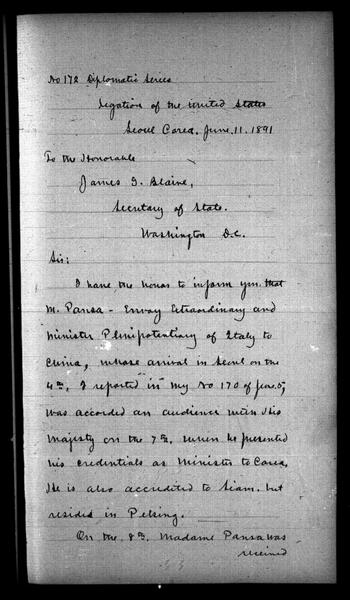 No 172 Diplomatic Series
Legation of the United States
Seoul Corea, June. 11. 1891
To the Honorable
James G. Blaine,
Secretary of State.
Washington D.C.
Sir:
I have the honor to inform you. that
M. Pansa - Envoy Extraordinary and
Minister Plenipotentiary of Italy to
China, whose arrival in Seoul on the
4th, I reported in my No 170 of June. 5,
was accorded an audience with His
Majesty on the 7th, when he presented
his credentials as Minister to Corea,
He is also accredited to Siam. but
resides in Peking.
On the 8th. Madame Pansa was
received